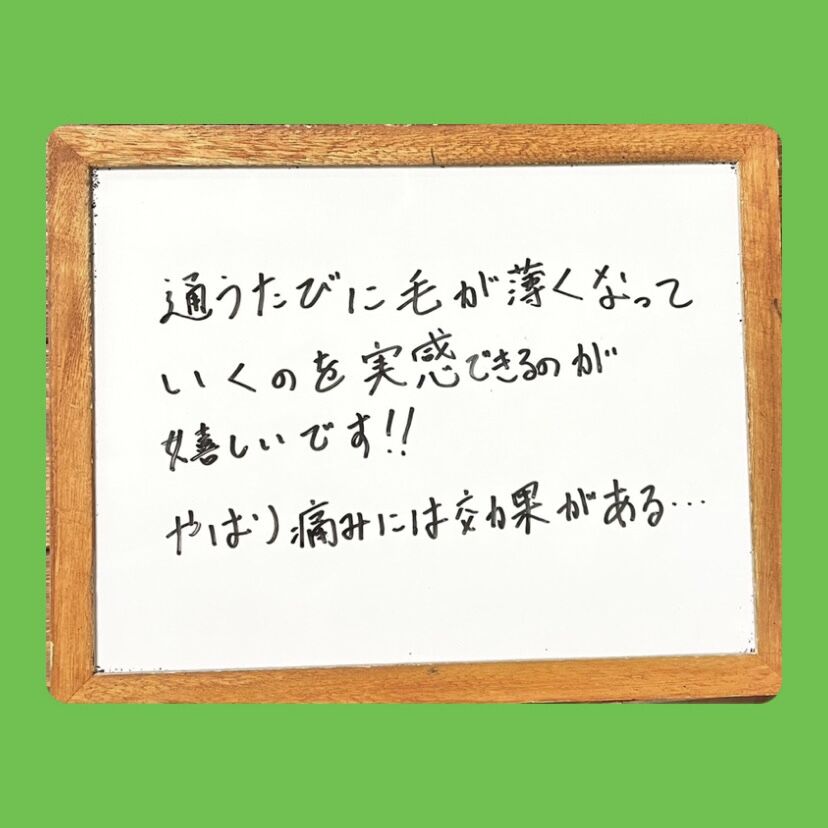 通うたびに毛が薄くなって
いくのを実感できるのが
嬉しいです!!
やはり痛みには効果がある…